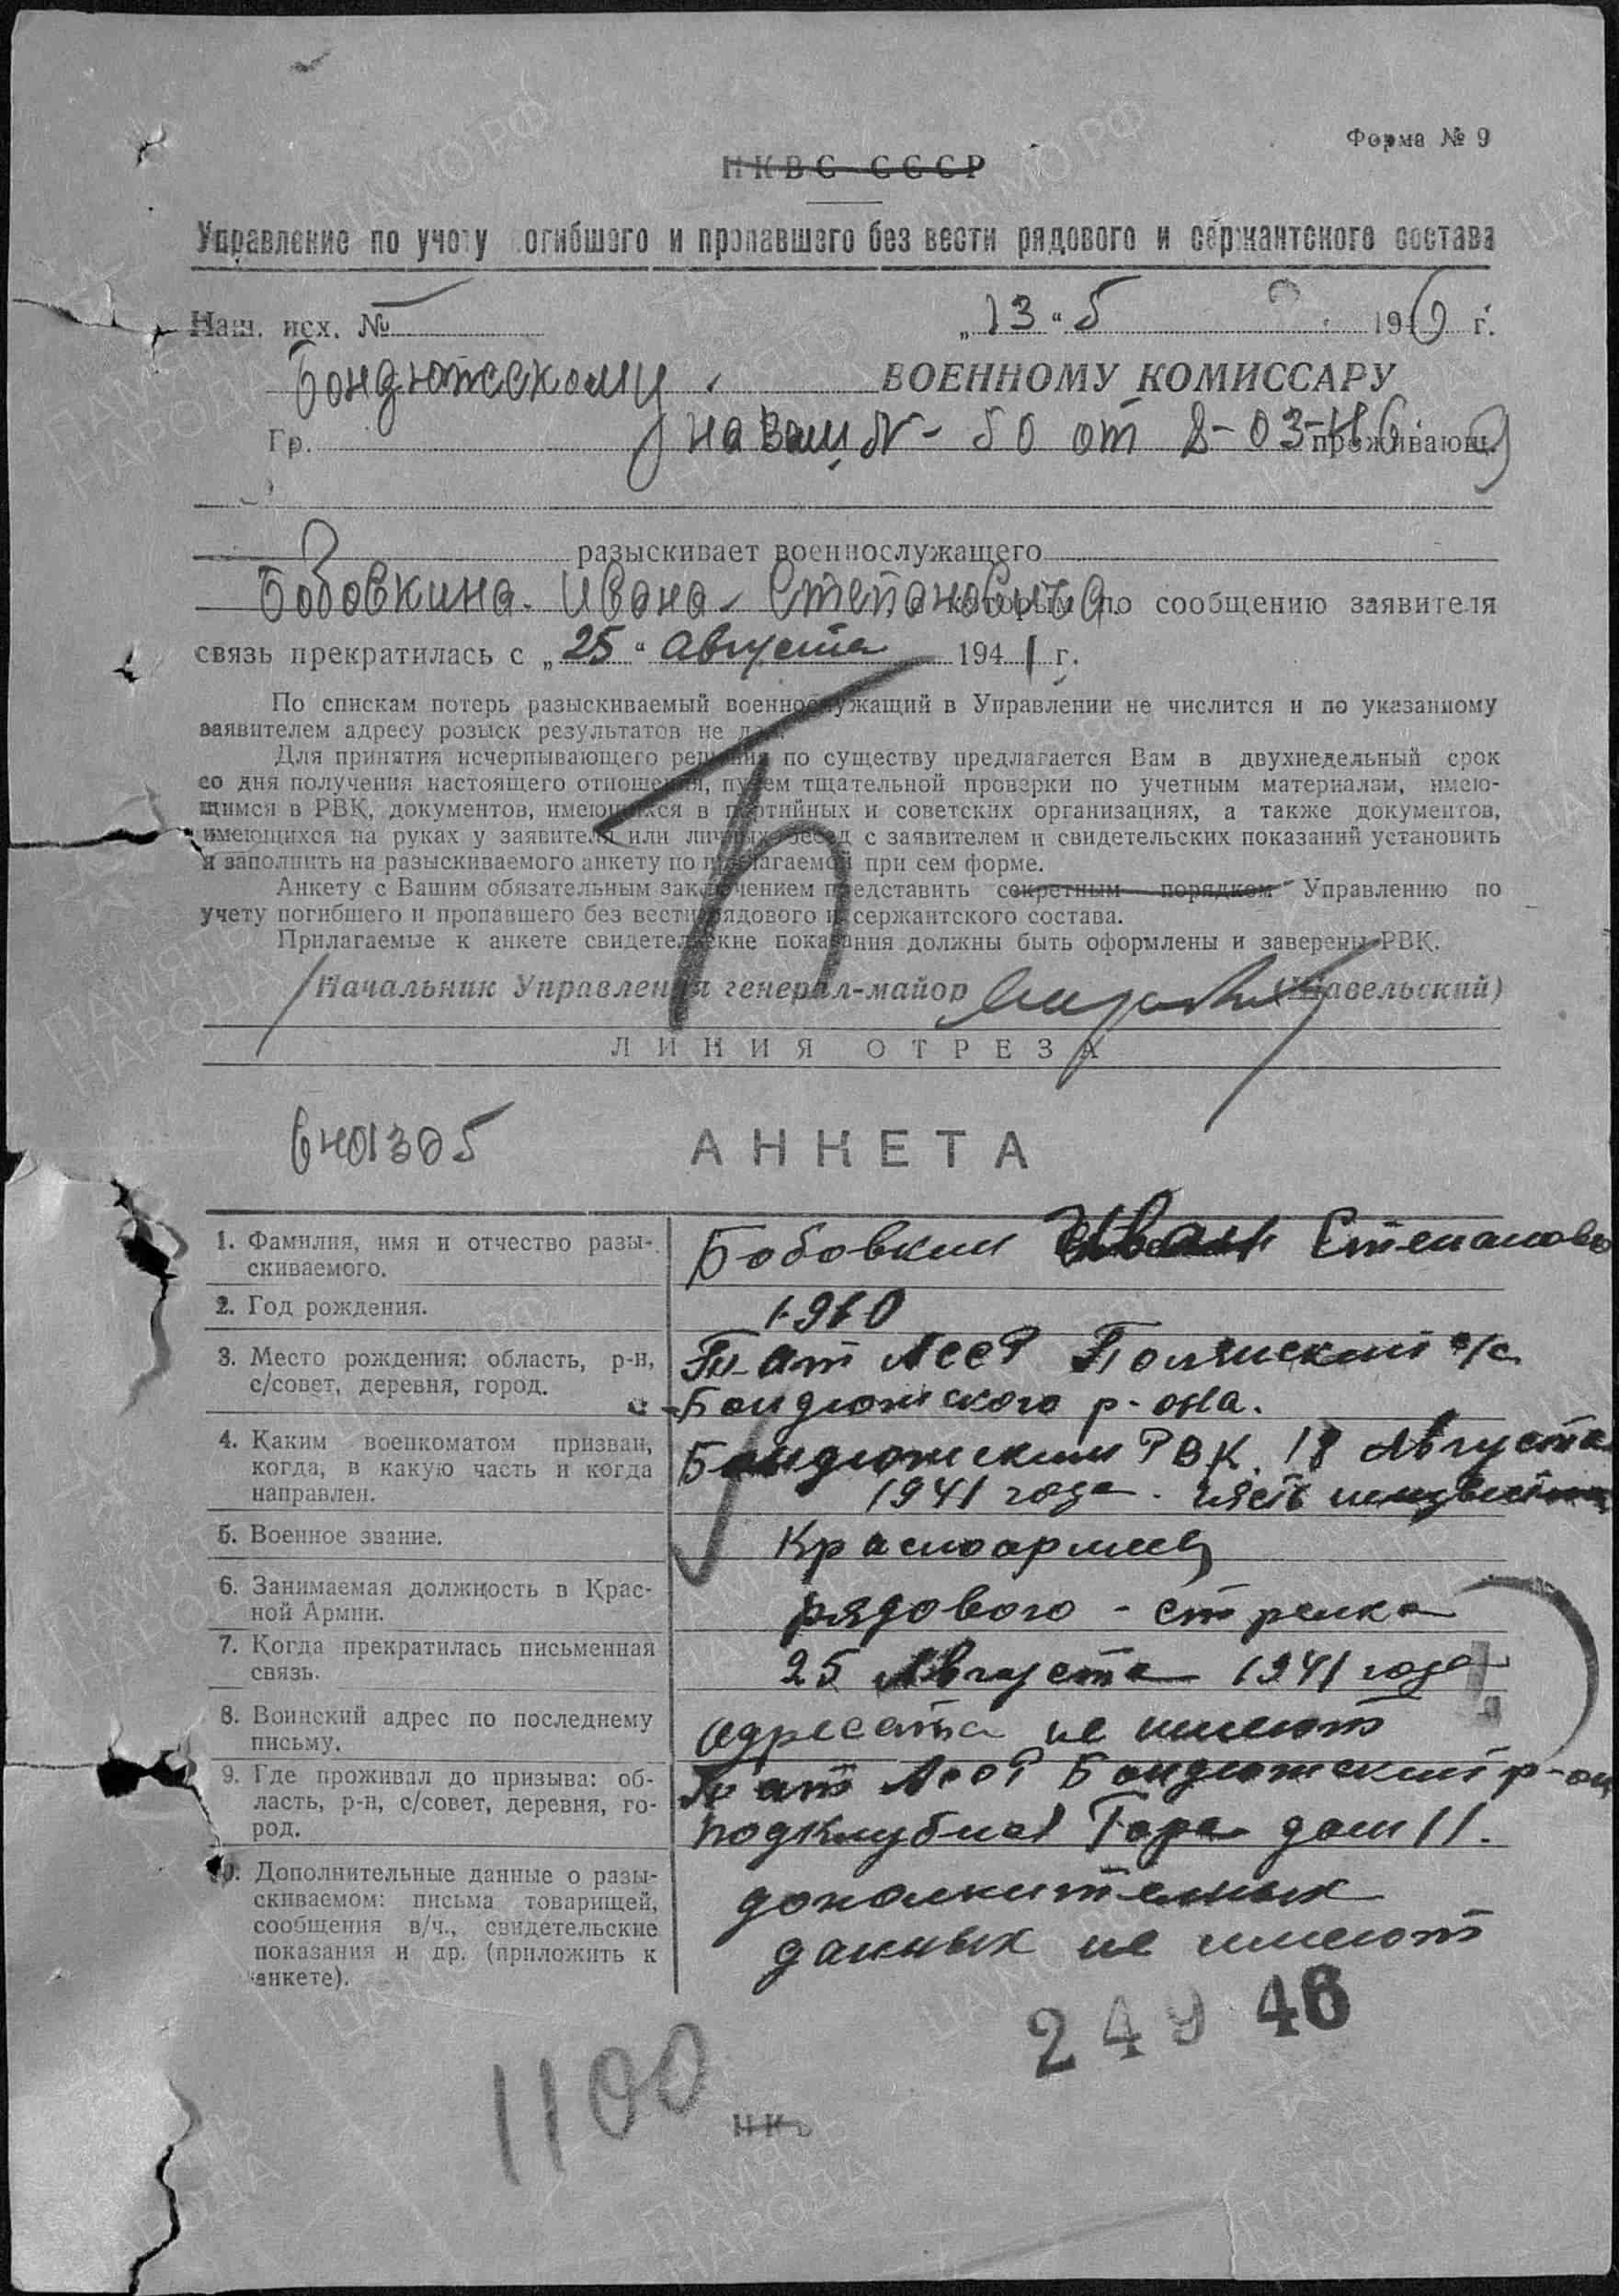 Форма № 9
НКВС СССР
Управление по учету погибшего и пропавшего без вести рядового и сержантского состава
Наш. исх. № „13“ 5 1946 г.
Бондюжскому ВОЕННОМУ КОМИССАРУ
Гр. на Ваш № - 50 от 8-03-46 проживающ
разыскивает военнослужащего
Бобовкина Ивана Степановича которым по сообщению заявителя
связь прекратилась с „25“ августа 1941 г.
По спискам потерь разыскиваемый военнослужащий в Управлении не числится и по указанному
заявителем адресу розыск результатов не дал.
Для принятия исчерпывающего решения по существу предлагается Вам в двухнедельный срок
со дня получения настоящего отношения, путем тщательной проверки по учетным материалам, имею-
щимся в РВК, документов, имеющихся в партийных и советских организациях, а также документов,
имеющихся на руках у заявителя или личных бесед с заявителем и свидетельских показаний установить
и заполнить на разыскиваемого анкету по прилагаемой при сем форме.
Анкету с Вашим обязательным заключением представить секретным порядком Управлению по
учету погибшего и пропавшего без вести рядового и сержантского состава.
Прилагаемые к анкете свидетельские показания должны быть оформлены и заверены РВК.
Начальник Управления генерал-майор (Шавельский)
ЛИНИЯ ОТРЕЗА
6401305
АНКЕТА
1. Фамилия, имя и отчество разы-
скиваемого.
Бобовкин Иван Степанов
2. Год рождения.
1910
3. Место рождения: область, р-н,
с/совет, деревня, город.
Тат АССР Полянский с/с
Бондюжского р-она.
4. Каким военкоматом призван,
когда, в какую часть и когда
направлен.
Бондюжским РВК. 18 Августа
1941 года. часть неизвестна
5. Военное звание.
Красноармеец
6. Занимаемая должность в Крас-
ной Армии.
рядового - стрелка
7. Когда прекратилась письменная
связь.
25 Августа 1941 года
8. Воинский адрес по последнему
письму.
адресата не имеют
9. Где проживал до призыва: об-
ласть, р-н, с/совет, деревня, го-
род.
Тат АССР Бондюжский р-он
Подклубная Гора дом 11.
10. Дополнительные данные о разы-
скиваемом: письма товарищей,
сообщения в/ч., свидетельские
показания и др. (приложить к
анкете).
дополнительных
данных не имеют
249 46
1100